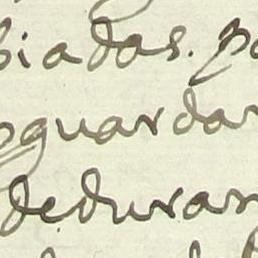 biadas. pa
oguardar
deduran